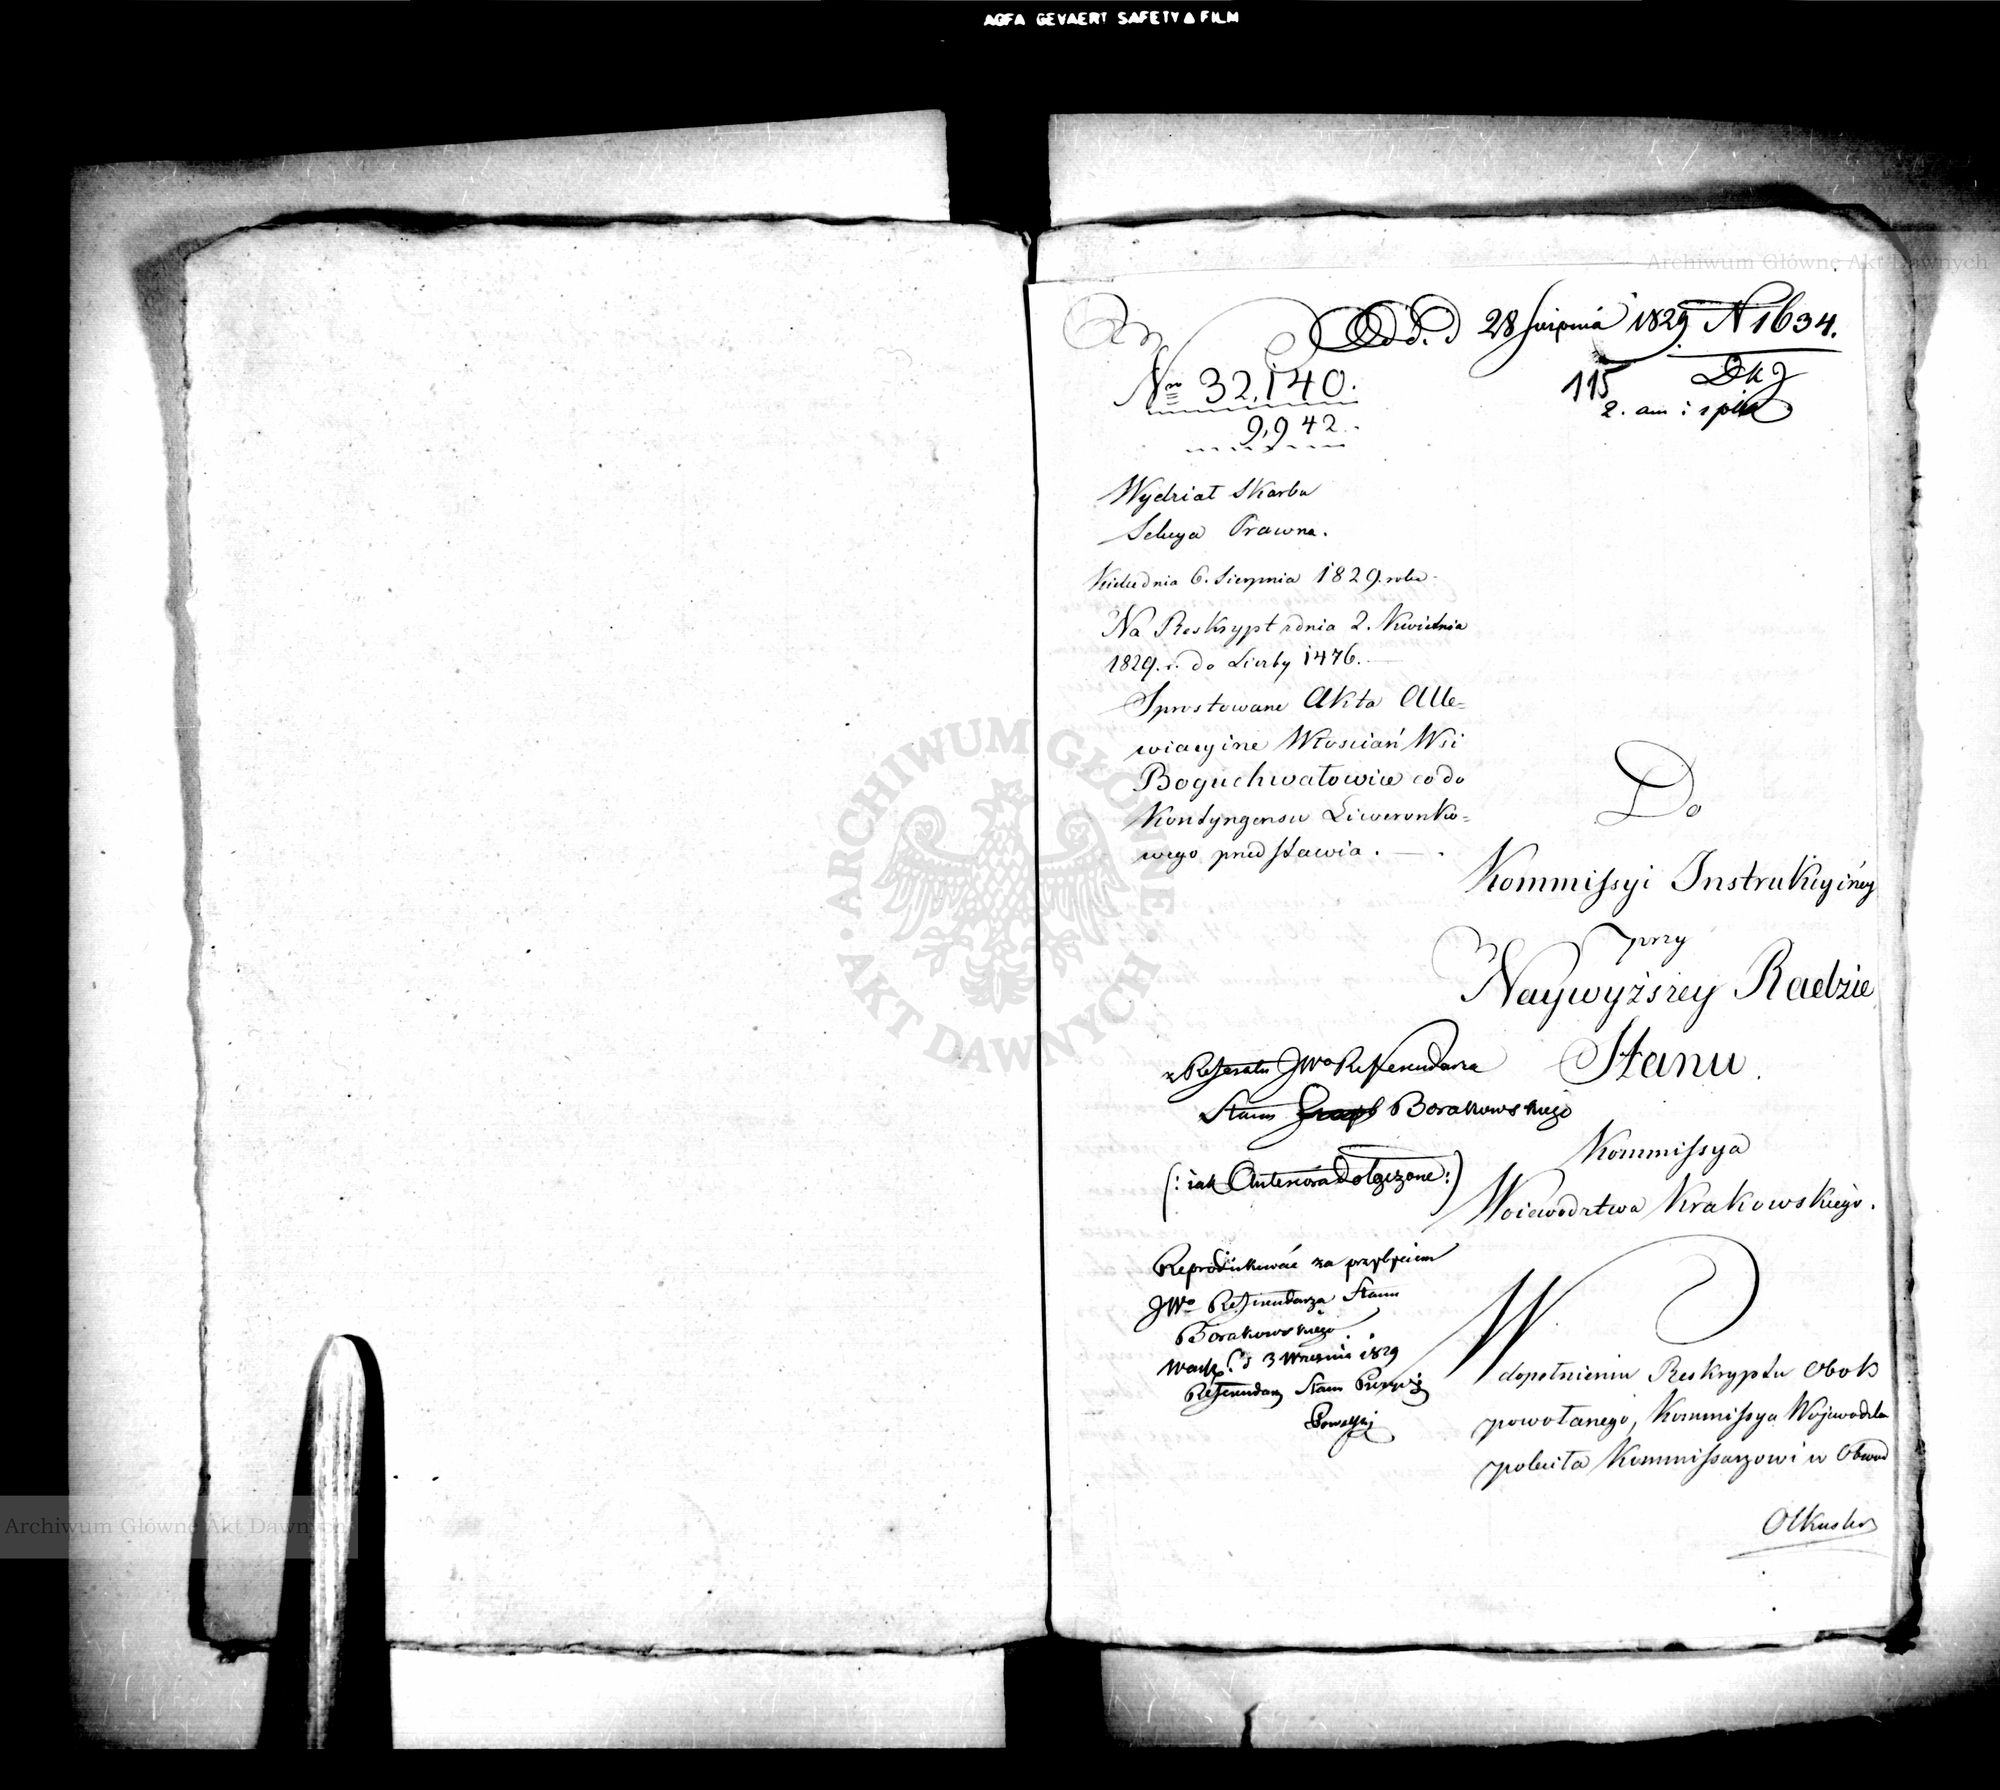 AGFA GEVAERT SAFETY FILM
Archiwum Główne Akt Dawnych
Odd. d 28 Sierpnia 1829 N 1634.
No 32,140.
9,942.
115
2. an : i
Wydział Skarbu
Sekcya Prawna.
dnia 6. Sierpnia 1829. roku.
Na Reskrypt z dnia 2. Kwietnia
1829. r. do Liczby 1476.
Sprostowane Akta Alle=
wiacyine Włościań Wsi
Boguchwałowice co do
Kontyngensu Liwerunko=
wego przedstawia.
Do
Kommissyi Instrukcyiney
przy
Naywyższey Radzie
Stanu.
z Referatu JWo Referendarza
Stanu Borakowskiego
(: iak Anteriora dołączone :)
Kommissya
Woiewodztwa Krakowskiego.
Reprodukować za przybyciem
JWo Referendarza Stanu
Borakowskiego.
d 3 Września 1829
Referendarz Stanu
W
dopełnieniu Reskryptu obok
powołanego, Kommissya Wojewodztwa
poleciła Kommissarzowi w Obwod
Olkusko
ARCHIWUM GŁÓWNE AKT DAWNYCH
Archiwum Główne Akt Dawnych